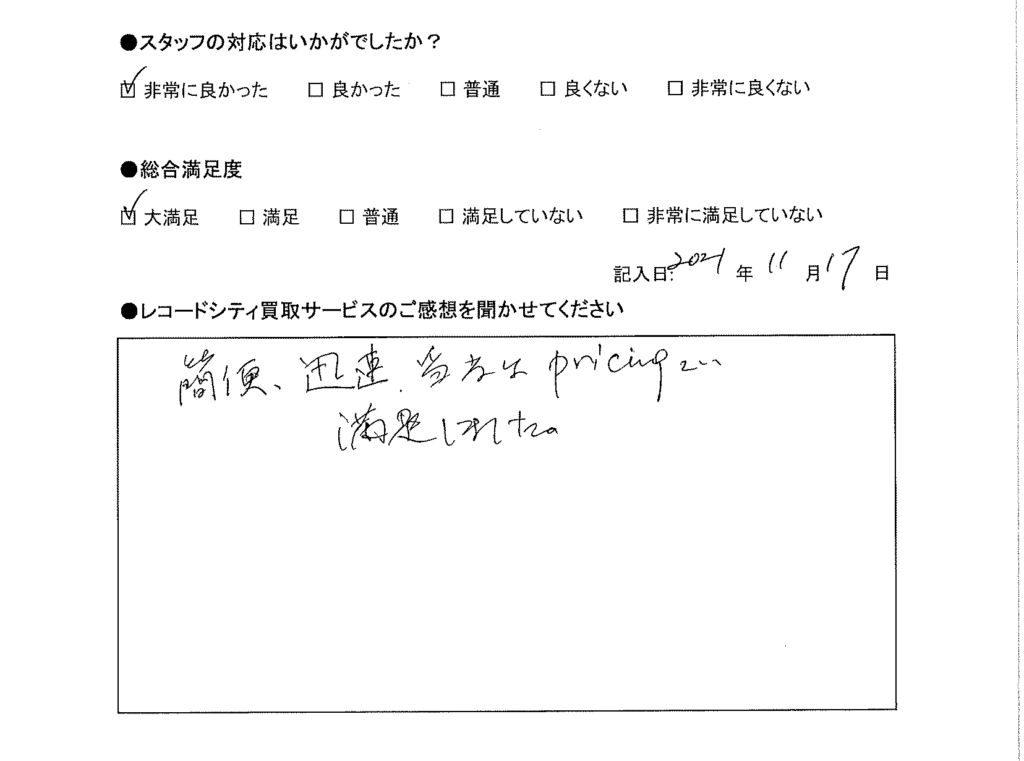 ●スタッフの対応はいかがでしたか？
☑ 非常に良かった □ 良かった □ 普通 □ 良くない □ 非常に良くない
●総合満足度
☑ 大満足 □ 満足 □ 普通 □ 満足していない □ 非常に満足していない
記入日:2021 年 11 月 17 日
●レコードシティ買取サービスのご感想を聞かせてください
簡便、迅速、 pricing に
満足しました。